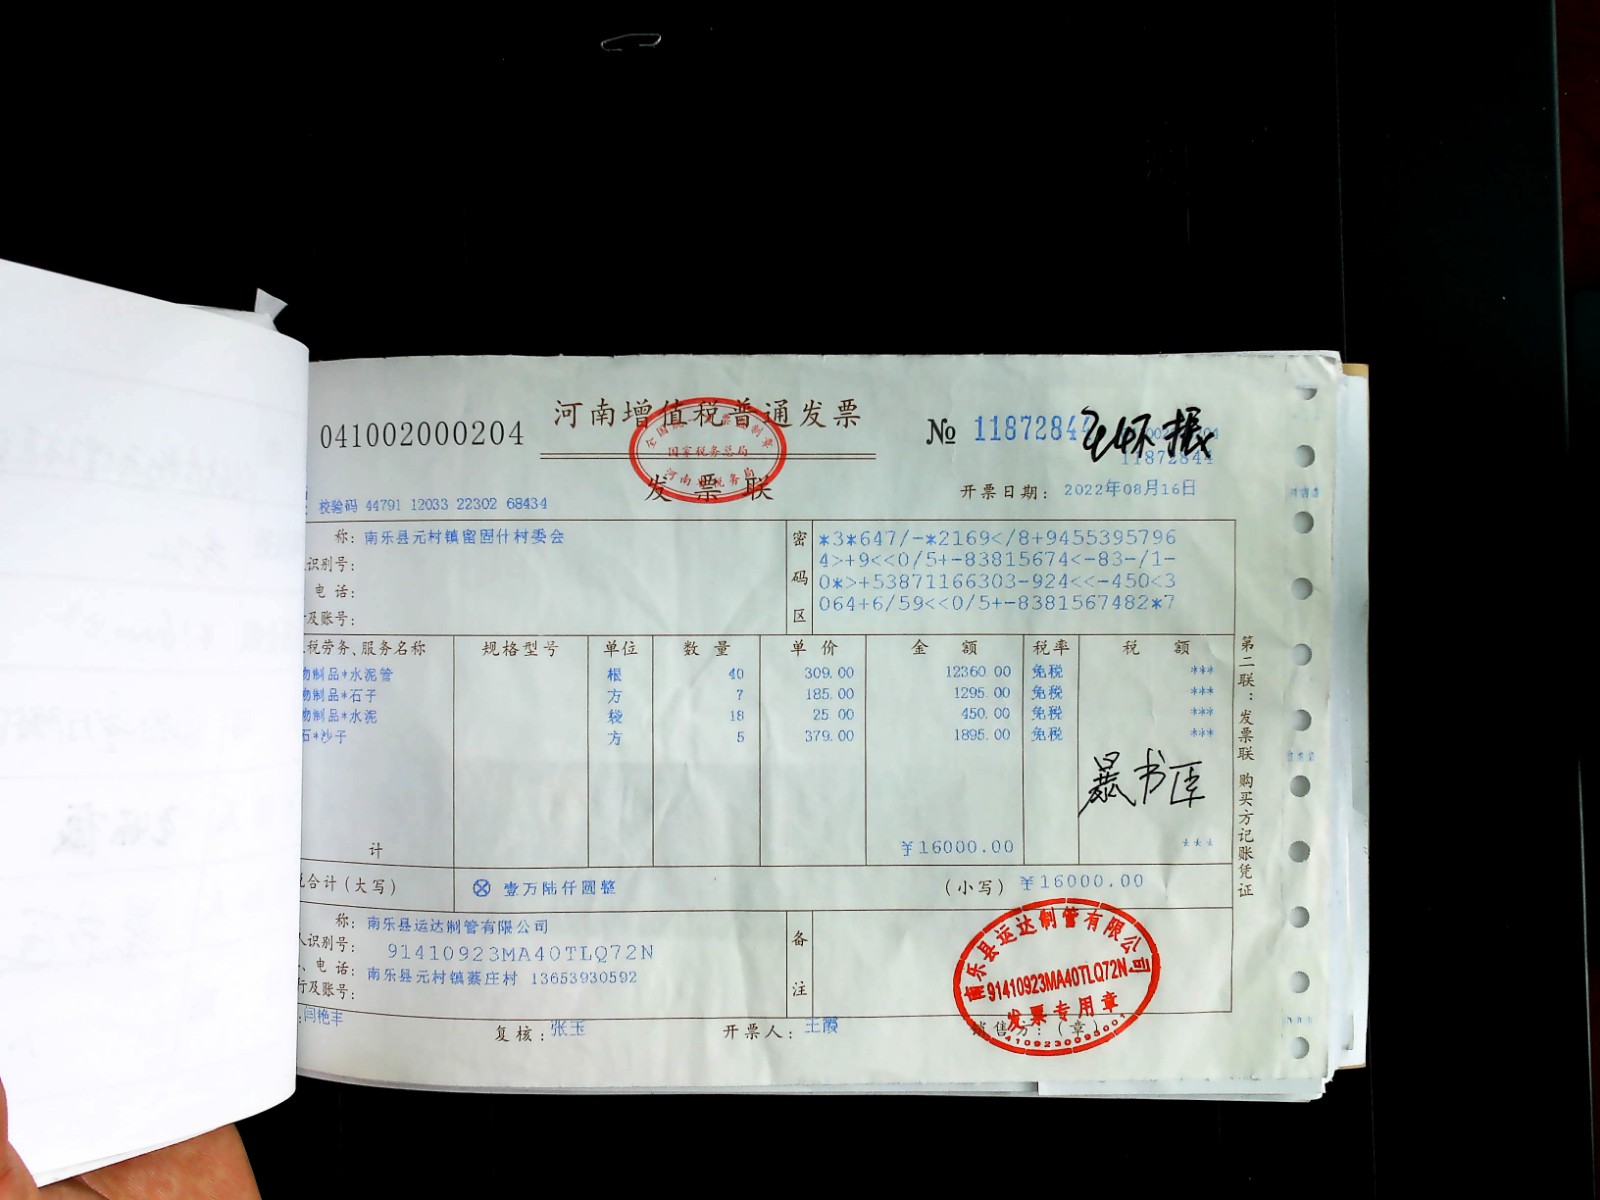 河南增值税普通发票
041002000204
№ 11872844
11872844
发票联
开票日期: 2022年08月16日
校验码 44791 12033 22302 68434
称: 南乐县元村镇留固什村委会
识别号:
电话:
及账号:
密码区
*3*647/-*2169</8+9455395796
4>+9<<0/5+-83815674<-83-/1-
0*>+53871166303-924<<-450<3
064+6/59<<0/5+-8381567482*7
税劳务、服务名称 规格型号 单位 数量 单价 金额 税率 税额
物制品*水泥管 根 40 309.00 12360.00 免税 ***
物制品*石子 方 7 185.00 1295.00 免税 ***
物制品*水泥 袋 18 25.00 450.00 免税 ***
石*沙子 方 5 379.00 1895.00 免税 ***
计 ¥16000.00 ***
合计(大写) ⊗ 壹万陆仟圆整 (小写) ¥16000.00
称: 南乐县运达制管有限公司
人识别号: 91410923MA40TLQ72N
、电话: 南乐县元村镇蔡庄村 13653930592
行及账号:
备注
闫艳丰 复核: 张玉 开票人: 王霞 销售方:(章)
第二联:发票联 购买方记账凭证
国家税务总局
南乐县运达制管有限公司
91410923MA40TLQ72N
发票专用章